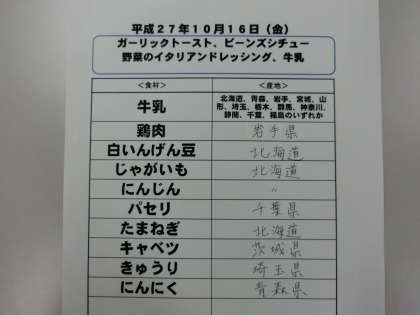 平成２７年１０月１６日（金）
ガーリックトースト、ビーンズシチュー
野菜のイタリアンドレッシング、牛乳
＜食材＞ ＜産地＞
牛乳 北海道、青森、岩手、宮城、山形、埼玉、栃木、群馬、神奈川、静岡、千葉、福島のいずれか
鶏肉 岩手県
白いんげん豆 北海道
じゃがいも 北海道
にんじん 〃
パセリ 千葉県
たまねぎ 北海道
キャベツ 茨城県
きゅうり 埼玉県
にんにく 青森県